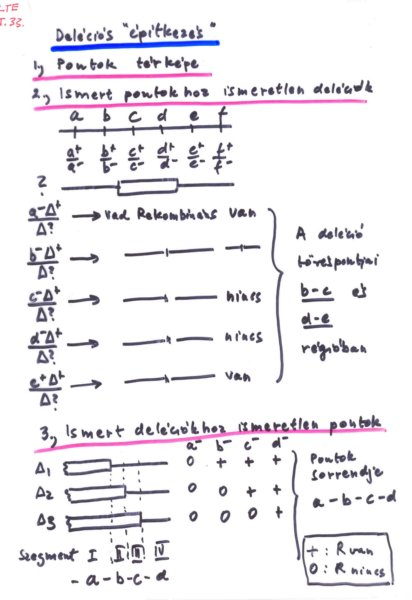 LTE
T. 33.
Deléciós "építkezés"
1, Pontok térképe
2, Ismert pontokhoz ismeretlen deléciók
a b c d e f
a+/a- b+/b- c+/c- d+/d- e+/e- f+/f-
?
a-Δ+/Δ? → vad Rekombináns van
b-Δ+/Δ? →
c-Δ+/Δ? → nincs
d-Δ+/Δ? → nincs
e+Δ+/Δ? → van
A deléció
töréspontjai
b-c és
d-e
régióban
3, Ismert deléciókhoz ismeretlen pontok
a- b- c- d-
Δ1 0 + + +
Δ2 0 0 + +
Δ3 0 0 0 +
Pontok
sorrendje
a-b-c-d
Szegment I II III IV
- a - b - c - d
+ : R van
0 : R nincs